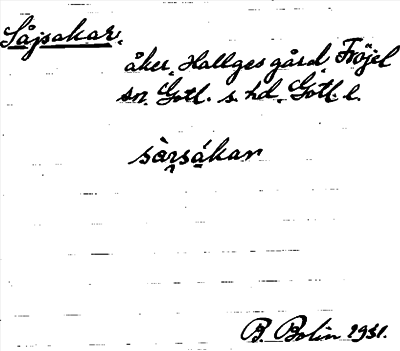 Såjsakar.
åker, Hallges gård Fröjel
sn. Gotl. s. hd. Gotl. l.
sàrsákan
B. Bolin 1931.